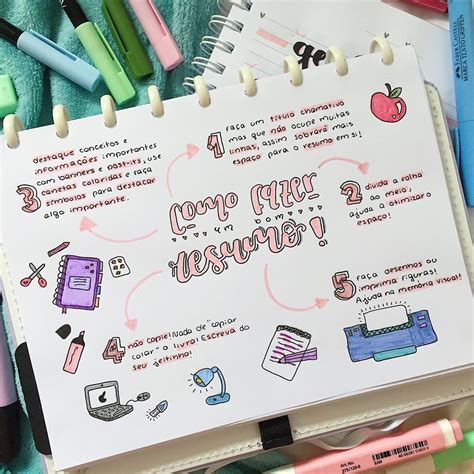 como fazer
um bom
resumo!
1 faça um título chamativo
mas que não ocupe muitas
linhas, assim sobrará mais
espaço para o resumo em si!
2 divida a folha
ao meio,
ajuda a otimizar o
espaço!
destaque conceitos e
informações importantes
com banners e post-its, use
canetas coloridas e faça
3 símbolos para destacar
algo importante.
4 não copie! Nada de "copiar
e colar" o livro! Escreva do
seu jeitinho!
5 faça desenhos ou
imprima figuras!
Ajuda na memória visual!
FABER-CASTELL
Art.No.